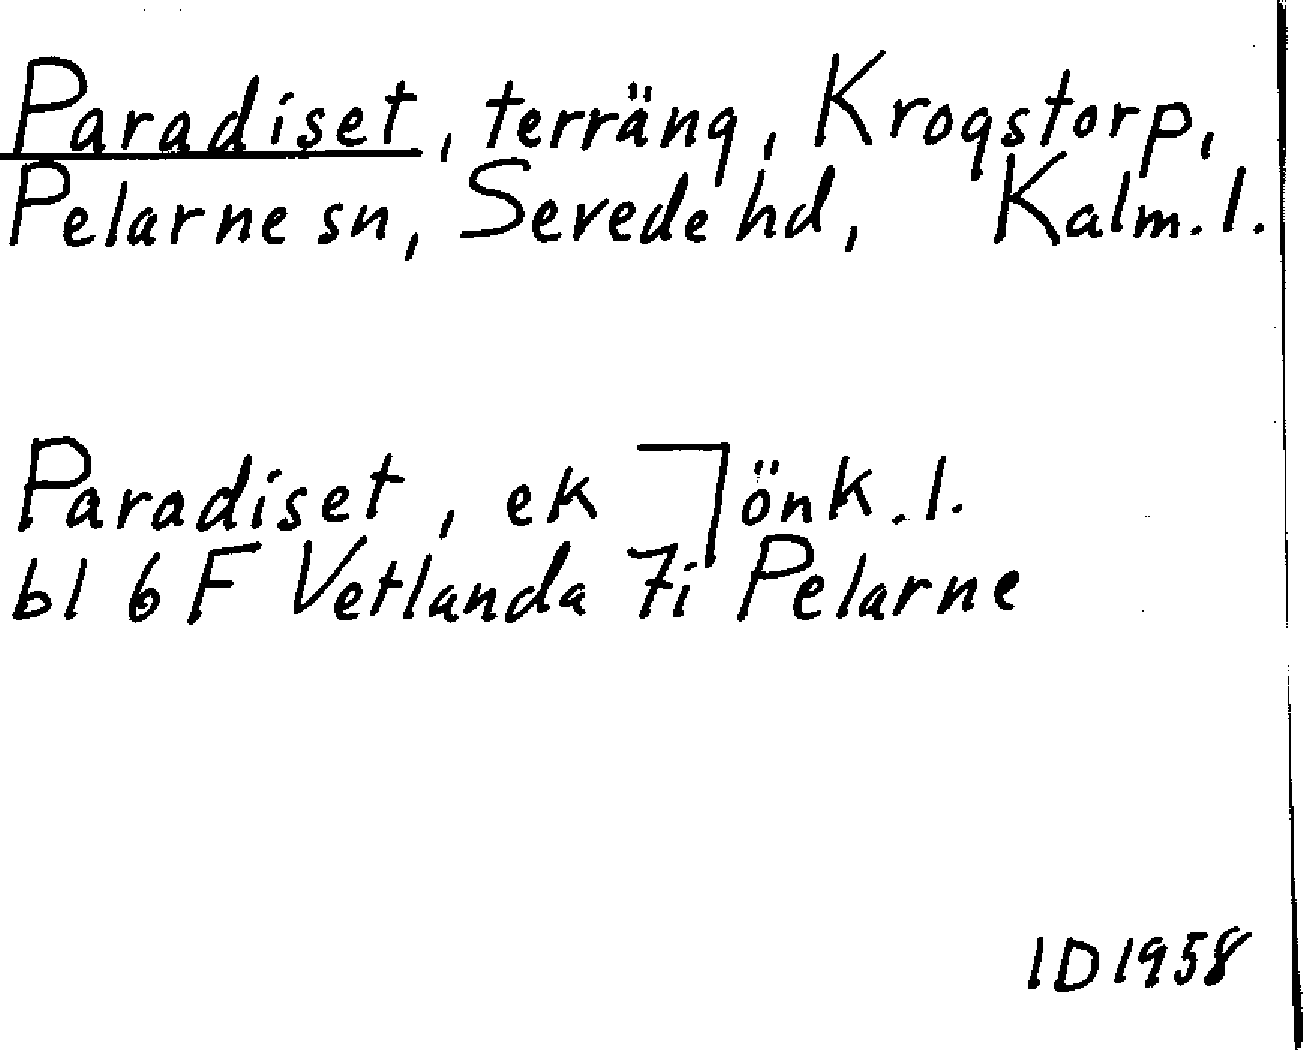 Paradiset, terräng, Krogstorp,
Pelarne sn, Sevede hd, Kalm. l.
Paradiset, ek Jönk. l.
bl 6 F Vetlanda 7i Pelarne
ID 1958